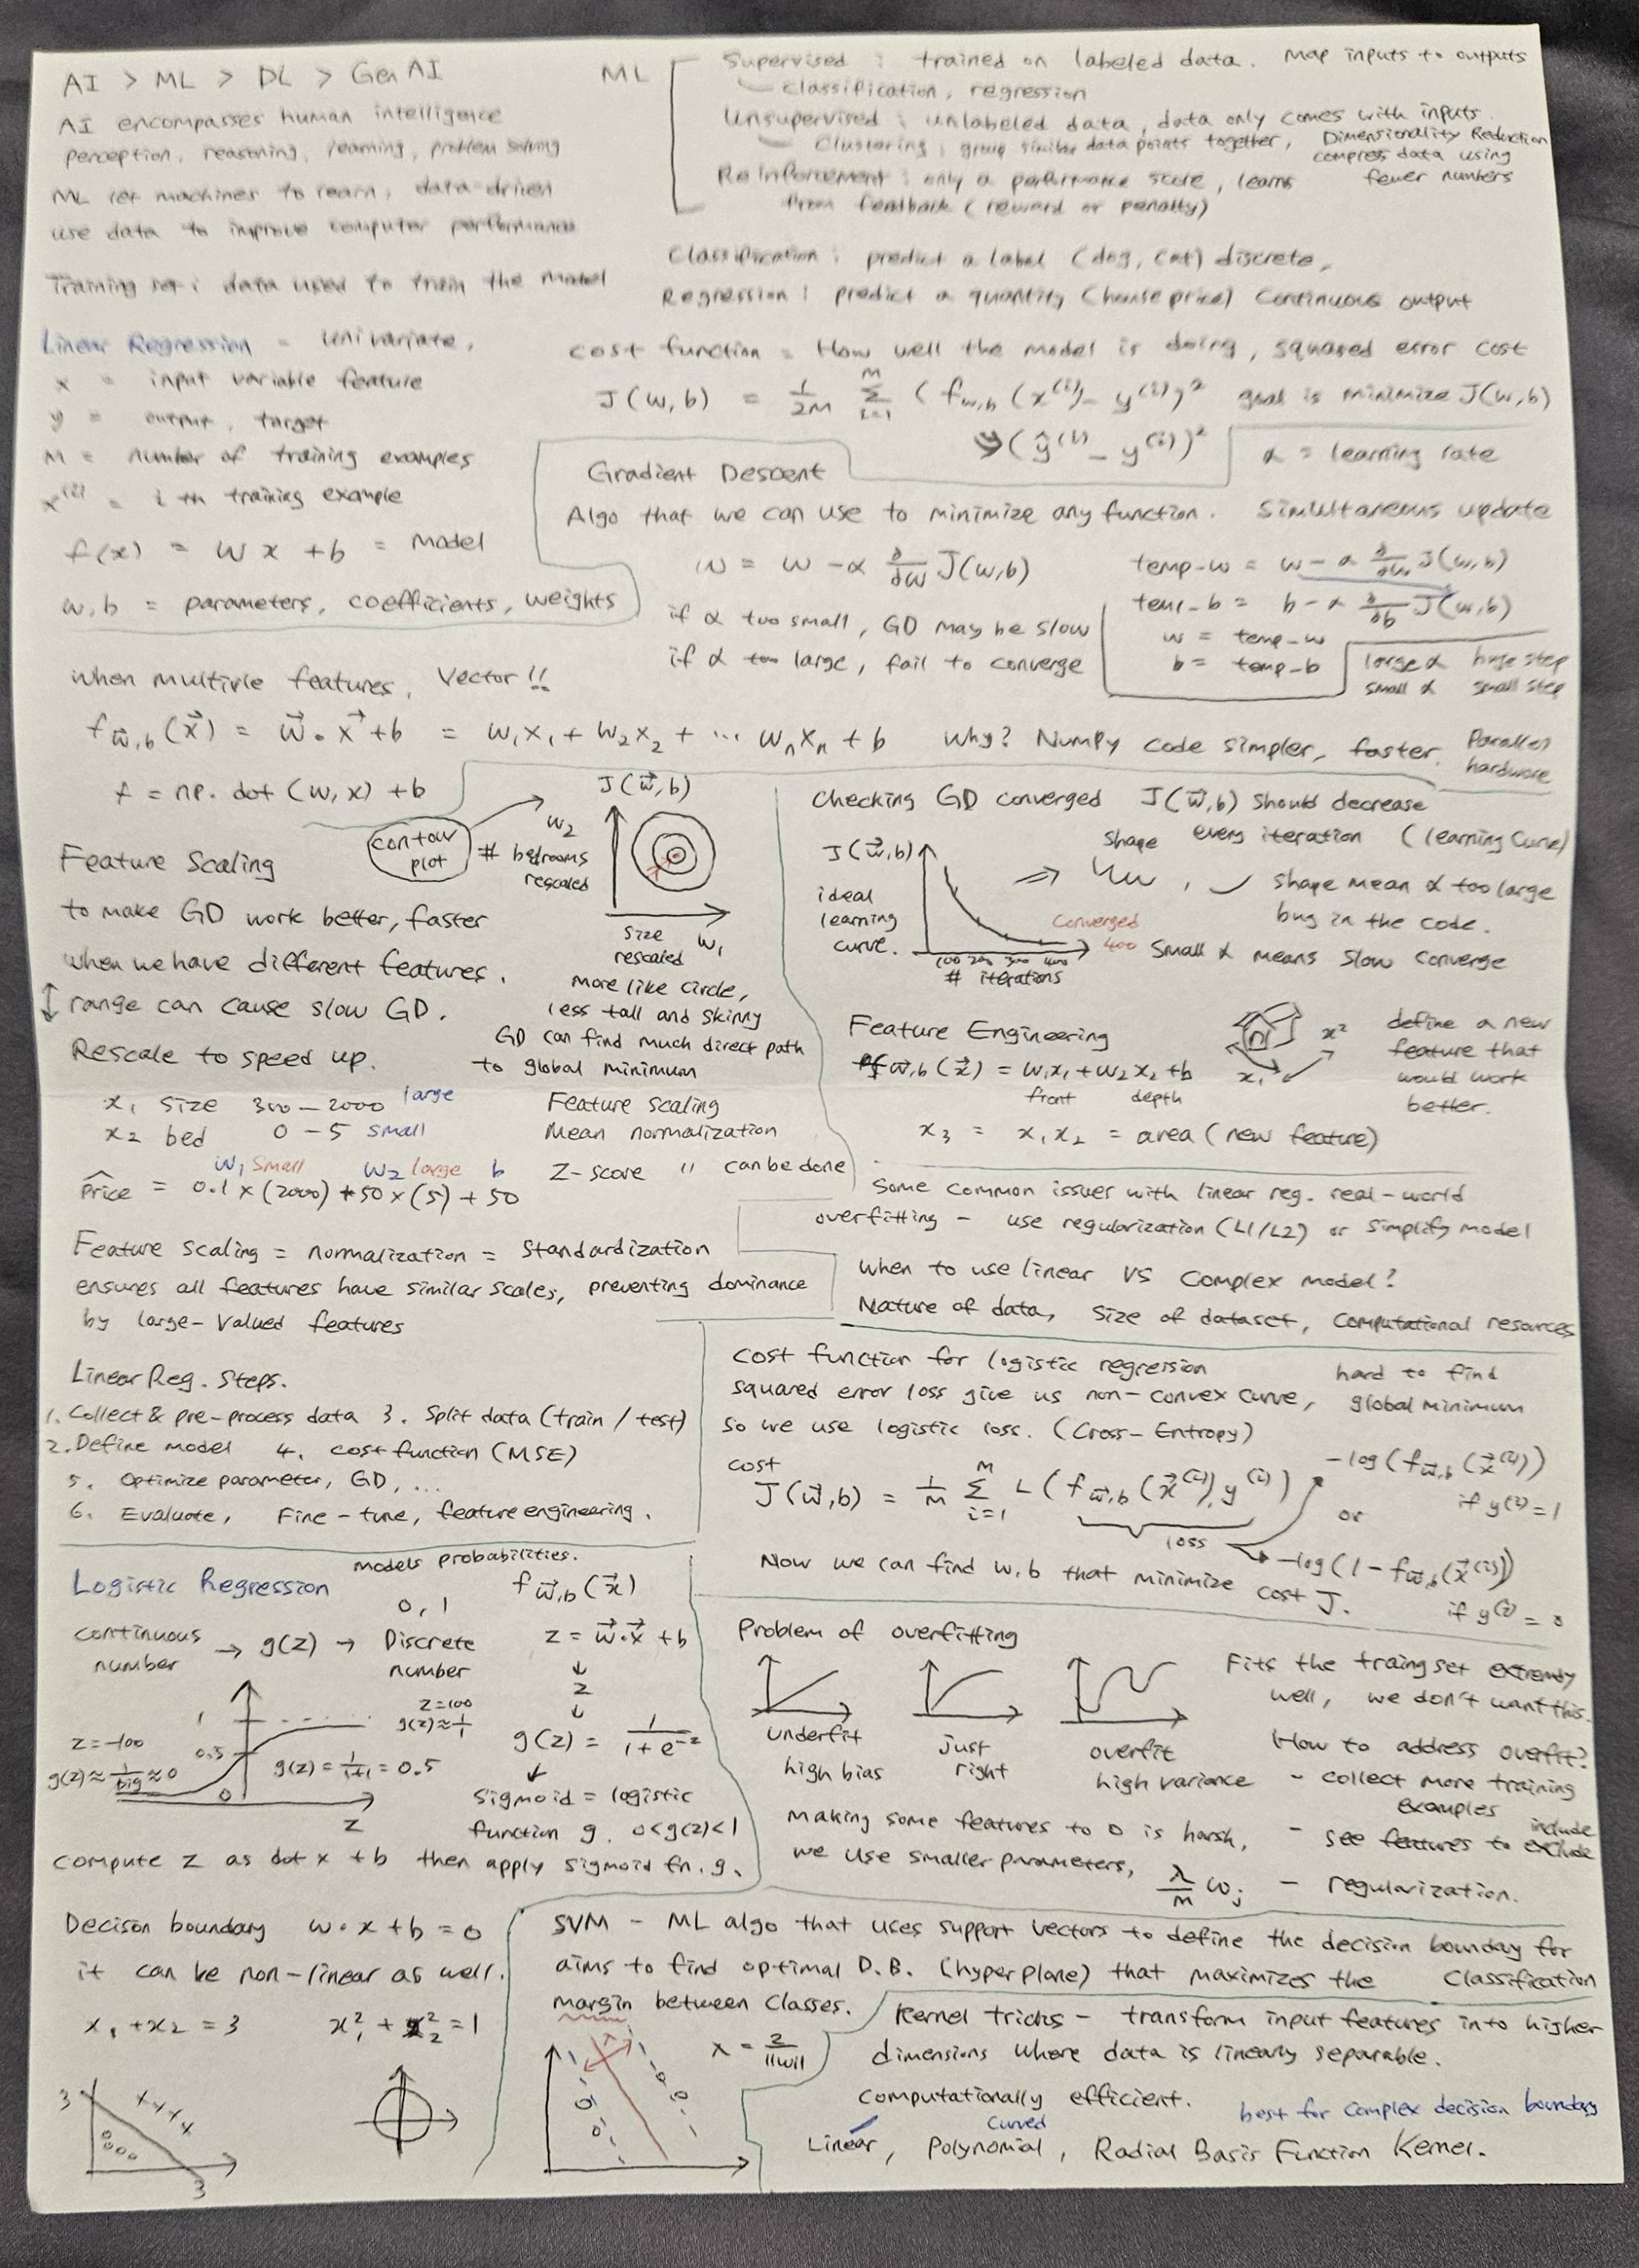 AI > ML > DL > Gen AI
AI encompasses human intelligence
perception, reasoning, learning, problem solving
ML let machines to learn, data-driven
use data to improve computer performance
Training set : data used to train the model
ML
Supervised : trained on labeled data. Map inputs to outputs
classification, regression
Unsupervised : unlabeled data, data only comes with inputs
Clustering : group similar data points together, Dimensionality Reduction
compress data using
fewer numbers
Reinforcement : only a performance score, learns
from feedback (reward or penalty)
Classification : predict a label (dog, cat) discrete,
Regression : predict a quantity (house price) continuous output
Linear Regression = Univariate,
x = input variable feature
y = output, target
M = number of training examples
x^(i) = i th training example
f(x) = wx + b = Model
w, b = parameters, coefficients, weights
cost function = How well the model is doing, squared error cost
J(w,b) = 1/2M M Σ i=1 (f w,b (x^(i)) - y^(i))² goal is minimize J(w,b)
(ŷ^(i) - y^(i))²
α = learning rate
Gradient Descent
Algo that we can use to minimize any function. Simultaneous update
w = w - α ∂/∂w J(w,b)
if α too small, GD may be slow
if α too large, fail to converge
temp_w = w - α ∂/∂w J(w,b)
temp_b = b - α ∂/∂b J(w,b)
w = temp_w
b = temp_b
large α huge step
small α small step
when multiple features, Vector!!
f w⃗,b (x⃗) = w⃗ • x⃗ + b = w₁x₁ + w₂x₂ + ... wₙxₙ + b Why? NumPy code simpler, faster. Parallel
hardware
f = np. dot (w, x) + b
contour
plot
J(w⃗,b)
w₂
# bedrooms
rescaled
size
rescaled
w₁
More like circle,
less tall and skinny
GD can find much direct path
to global minimum
Feature Scaling
to make GD work better, faster
when we have different features.
↕ range can cause slow GD.
Rescale to speed up.
x₁ size 300 - 2000 large
x₂ bed 0 - 5 small
w₁ small w₂ large b
Price^ = 0.1 × (2000) + 50 × (5) + 50
Feature scaling
Mean normalization
Z-score " can be done
Feature scaling = normalization = Standardization
ensures all features have similar scales, preventing dominance
by large-valued features
Checking GD converged J(w⃗,b) should decrease
every iteration (learning curve)
J(w⃗,b)
ideal
learning
curve.
100 200 300 400
# iterations
Converged
400
shape
shape mean α too large
bug in the code.
Small α means slow converge
Feature Engineering
f w⃗,b (x⃗) = w₁x₁ + w₂x₂ + b
front depth
x₁
x²
define a new
feature that
would work
better.
x₃ = x₁x₂ = area (new feature)
Some common issues with linear reg. real-world
overfitting - use regularization (L1/L2) or simplify model
When to use linear VS Complex model?
Nature of data, Size of dataset, Computational resources
Linear Reg. Steps.
1. Collect & pre-process data 3. Split data (train / test)
2. Define model 4. cost function (MSE)
5. Optimize parameter, GD, ...
6. Evaluate, Fine-tune, feature engineering.
cost function for logistic regression
squared error loss give us non-convex curve, hard to find
global minimum
so we use logistic loss. (Cross-Entropy)
cost
J(w⃗,b) = 1/M M Σ i=1 L (f w⃗,b (x⃗^(i)), y^(i))
loss
-log(f w⃗,b (x⃗^(i)))
if y^(i) = 1
or
-log(1 - f w⃗,b (x⃗^(i)))
if y^(i) = 0
Now we can find w,b that minimize cost J.
Logistic Regression
models probabilities.
continuous
number
→ g(z) →
0, 1
Discrete
number
f w⃗,b (x⃗)
z = w⃗·x⃗ + b
↓
z
↓
g(z) = 1/(1+e^-z)
↓
sigmoid = logistic
function g. 0<g(z)<1
z=-100
g(z)≈1/big≈0
1
0.5
0
z=100
g(z)≈1/1
g(z) = 1/(1+1) = 0.5
z
compute z as dot x + b then apply sigmoid fn. g.
Problem of overfitting
underfit
high bias
just
right
overfit
high variance
Fits the traing set extremly
well, we don't want this.
How to address overfit?
- collect more training
examples
- see features to include
exclude
- regularization.
making some features to 0 is harsh,
we use smaller parameters,
λ/m wⱼ
Decison boundary w·x + b = 0
it can be non-linear as well.
x₁ + x₂ = 3
x₁² + x₂² = 1
3
3
SVM - ML algo that uses support vectors to define the decision boundary for
classification
aims to find optimal D.B. (hyperplane) that maximizes the
margin between classes.
x = 2/||w||
Kernel tricks - transform input features into higher
dimensions where data is linearly separable.
computationally efficient.
best for complex decision boundary
curved
Linear, Polynomial, Radial Basis Function Kernel.